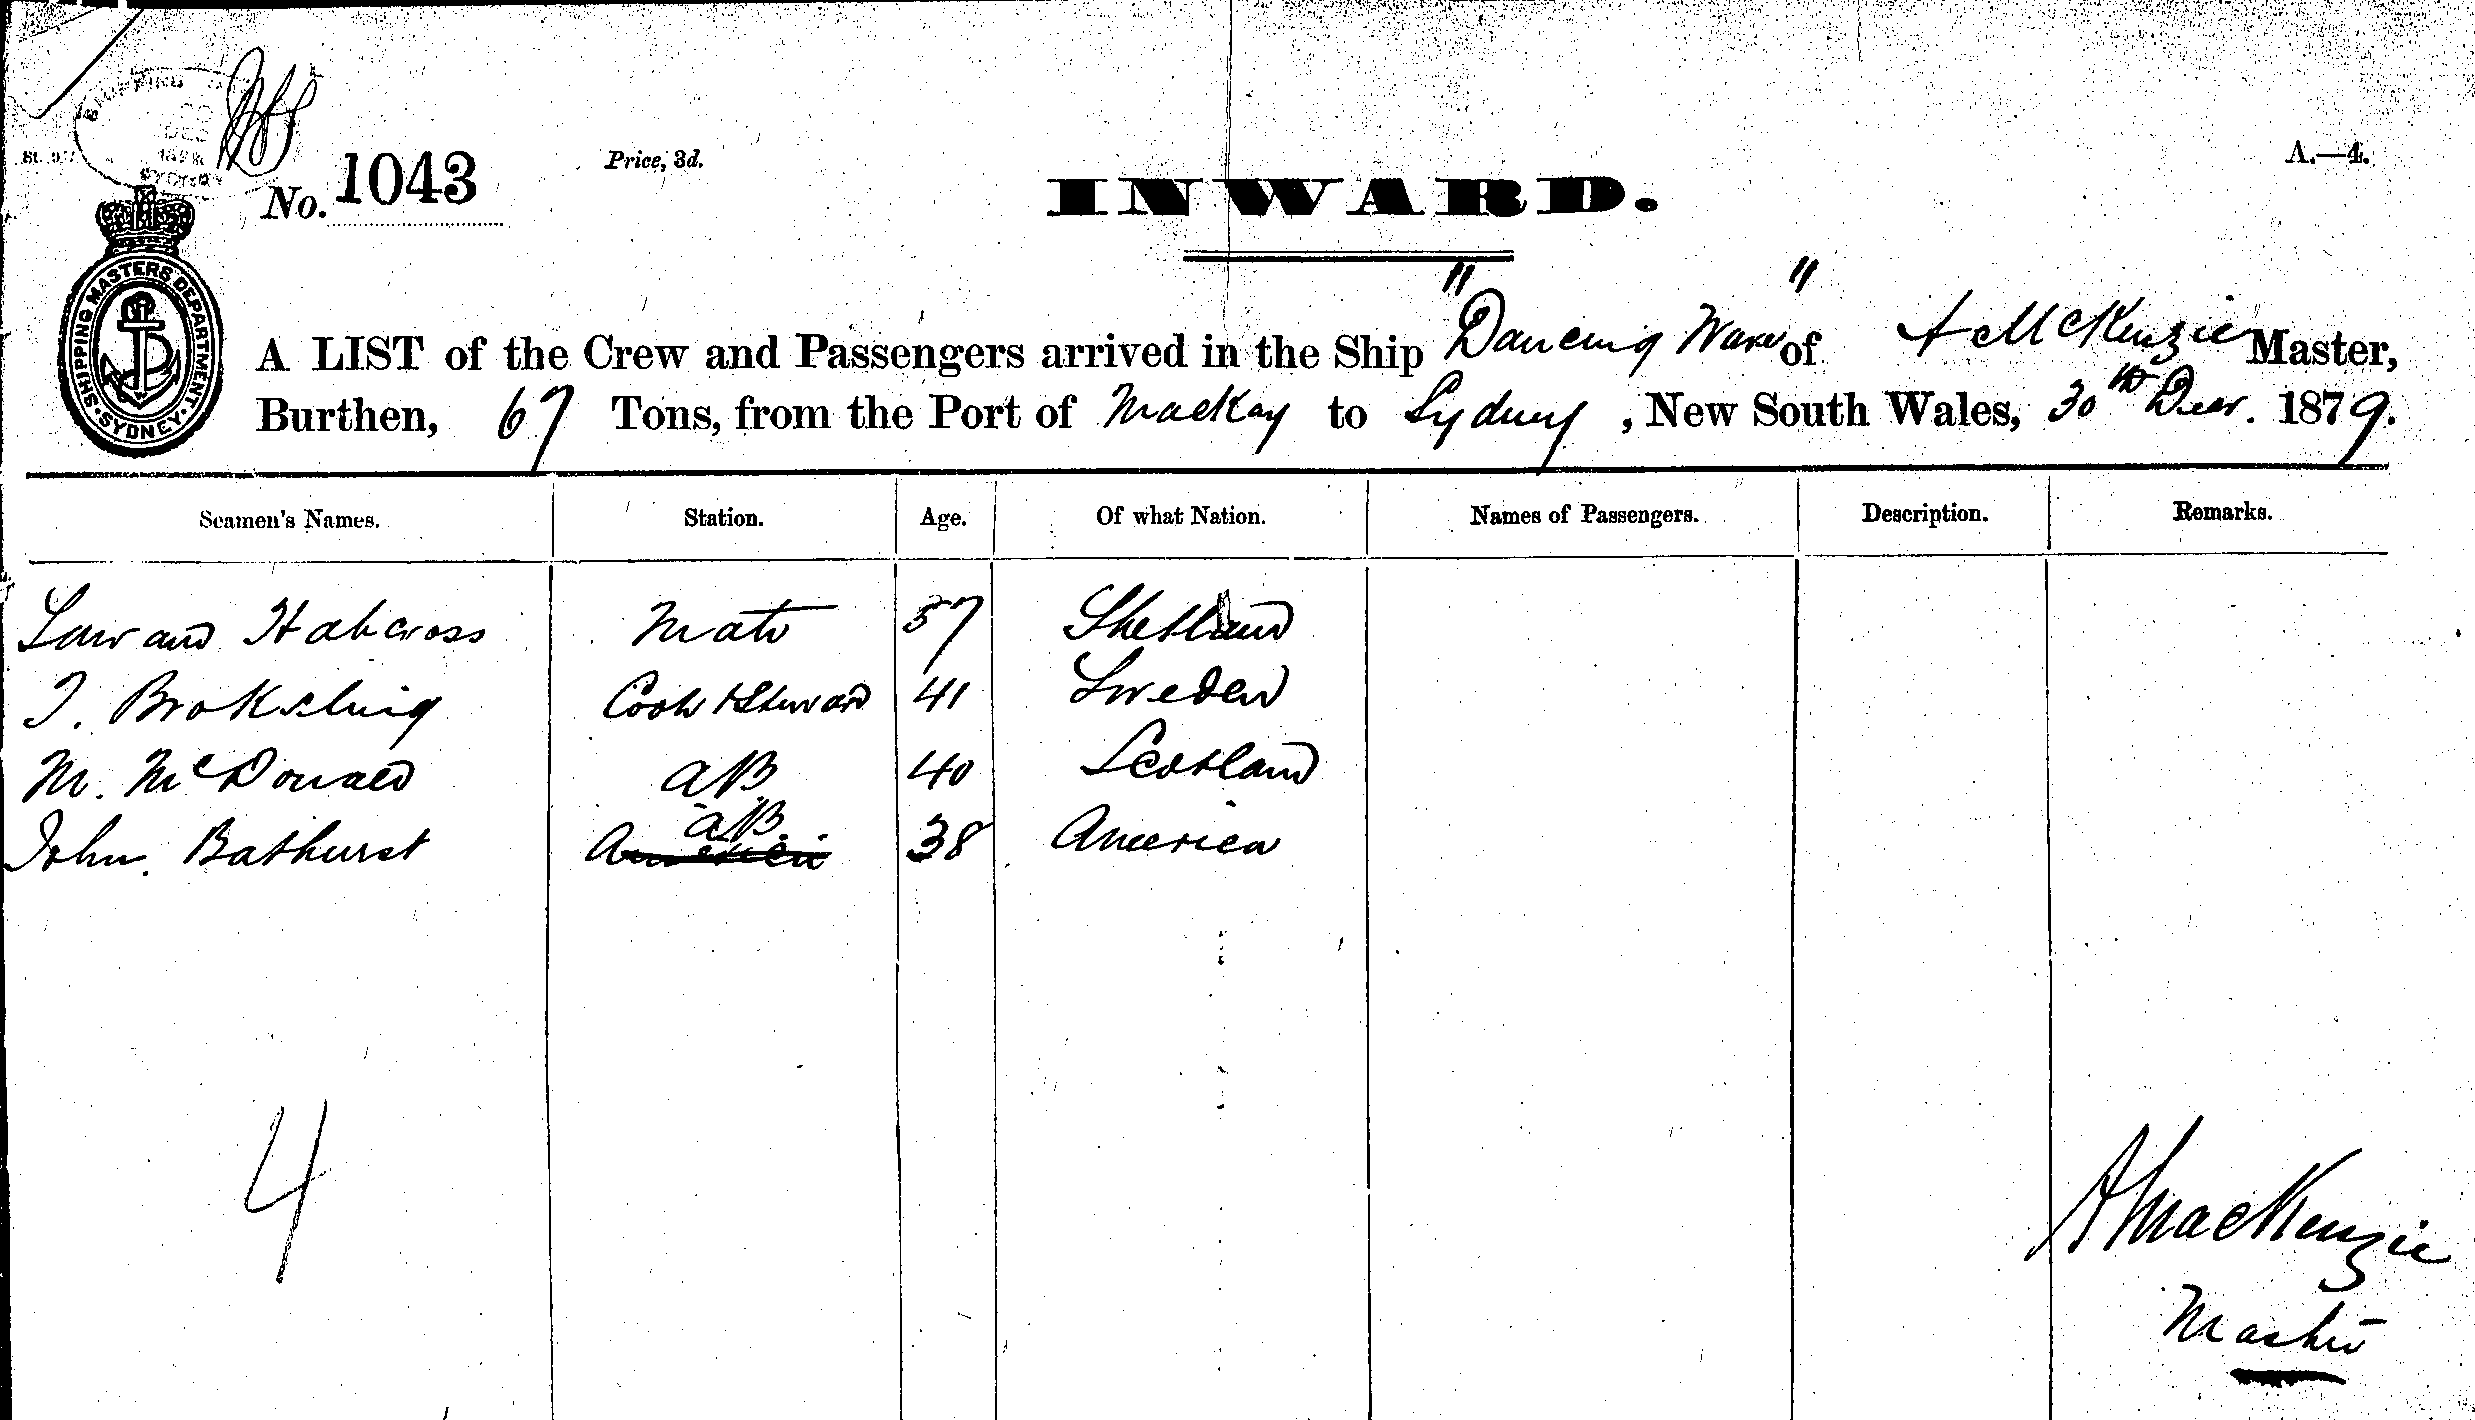 SHIPPING
DEC
SYDNEY
No. 1043
Price, 3d.
A.—4.
INWARD.
SHIPPING MASTERS DEPARTMENT. SYDNEY
A LIST of the Crew and Passengers arrived in the Ship "Dancing Wave" of A McKenzie Master,
Burthen, 67 Tons, from the Port of MacKay to Sydney, New South Wales, 30th Decr. 1879.
Seamen's Names. Station. Age. Of what Nation. Names of Passengers. Description. Remarks.
Mate 57 Shetland
Cook & Steward 41 Sweden
M. McDonald AB 40 Scotland
John Bathurst America AB 38 America
4
A MacKenzie
Master